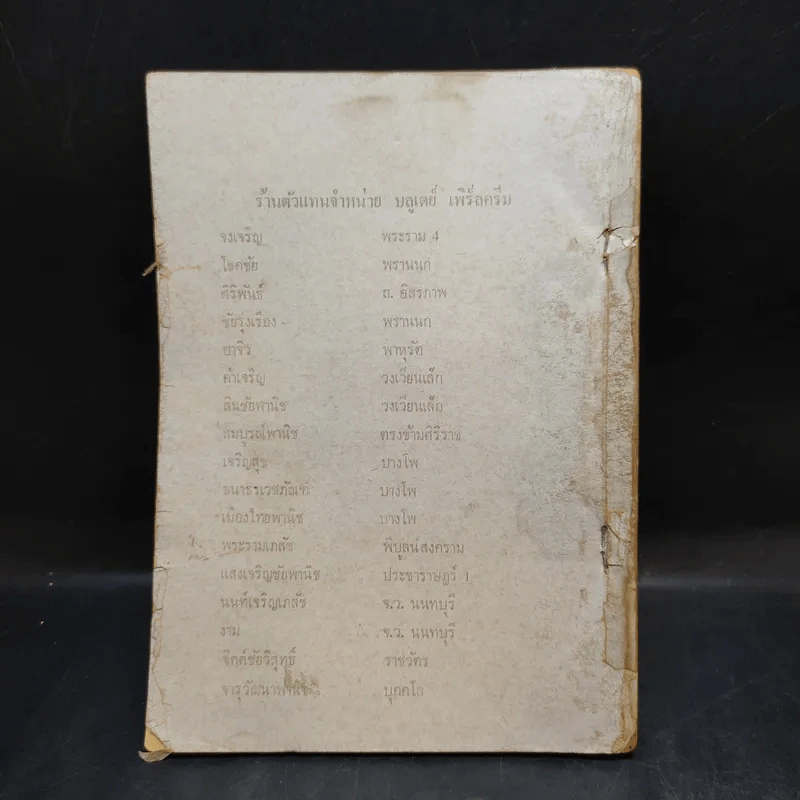 ร้านตัวแทนจำหน่าย บลูเดย์ เพิร์ลครีม
จงเจริญ พระราม 4
โชคชัย พรานนก
ศิริพันธ์ ถ. อิสรภาพ
ชัยรุ่งเรือง พรานนก
ฮาจิว พาหุรัต
คำเจริญ วงเวียนเล็ก
ลินชัยพานิช วงเวียนเล็ก
สมบูรณ์พานิช ตรงข้ามศิริราช
เจริญสุข บางโพ
ธนาธรเวสภัณฑ์ บางโพ
เมืองไทยพานิช บางโพ
พระรามเภสัช พิบูลน์สงคราม
แสงเจริญชัยพานิช ประชาราษฎร์ 1
นนท์เจริญเภสัช จ.ว. นนทบุรี
งาม จ.ว. นนทบุรี
จิตต์ชัยวิสุทธิ์ ราชวัตร
บุคคโล